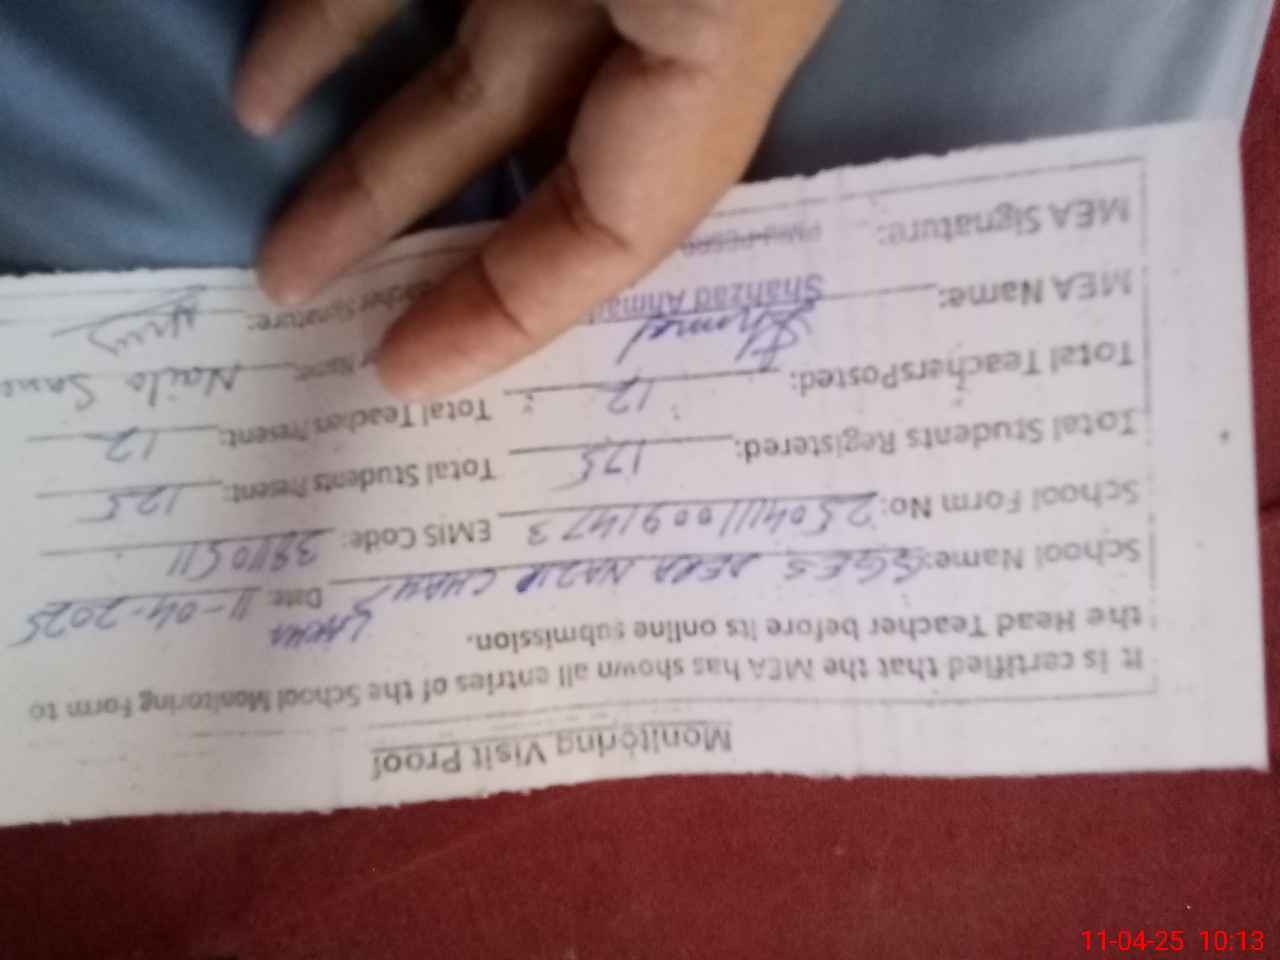 Monitoring Visit Proof
It is certified that the MEA has shown all entries of the School Monitoring Form to
the Head Teacher before its online submission.
School Name: GGES DERA NAZIR Date: 11-04-2025
School Form No: EMIS Code: 38110511
Total Students Registered: 125 Total Students Present: 125
Total TeachersPosted: 12 Total Teachers Present: 12
MEA Name: Shahzad Ahmad Name: Naila
MEA Signature: Signature:
11-04-25 10:13